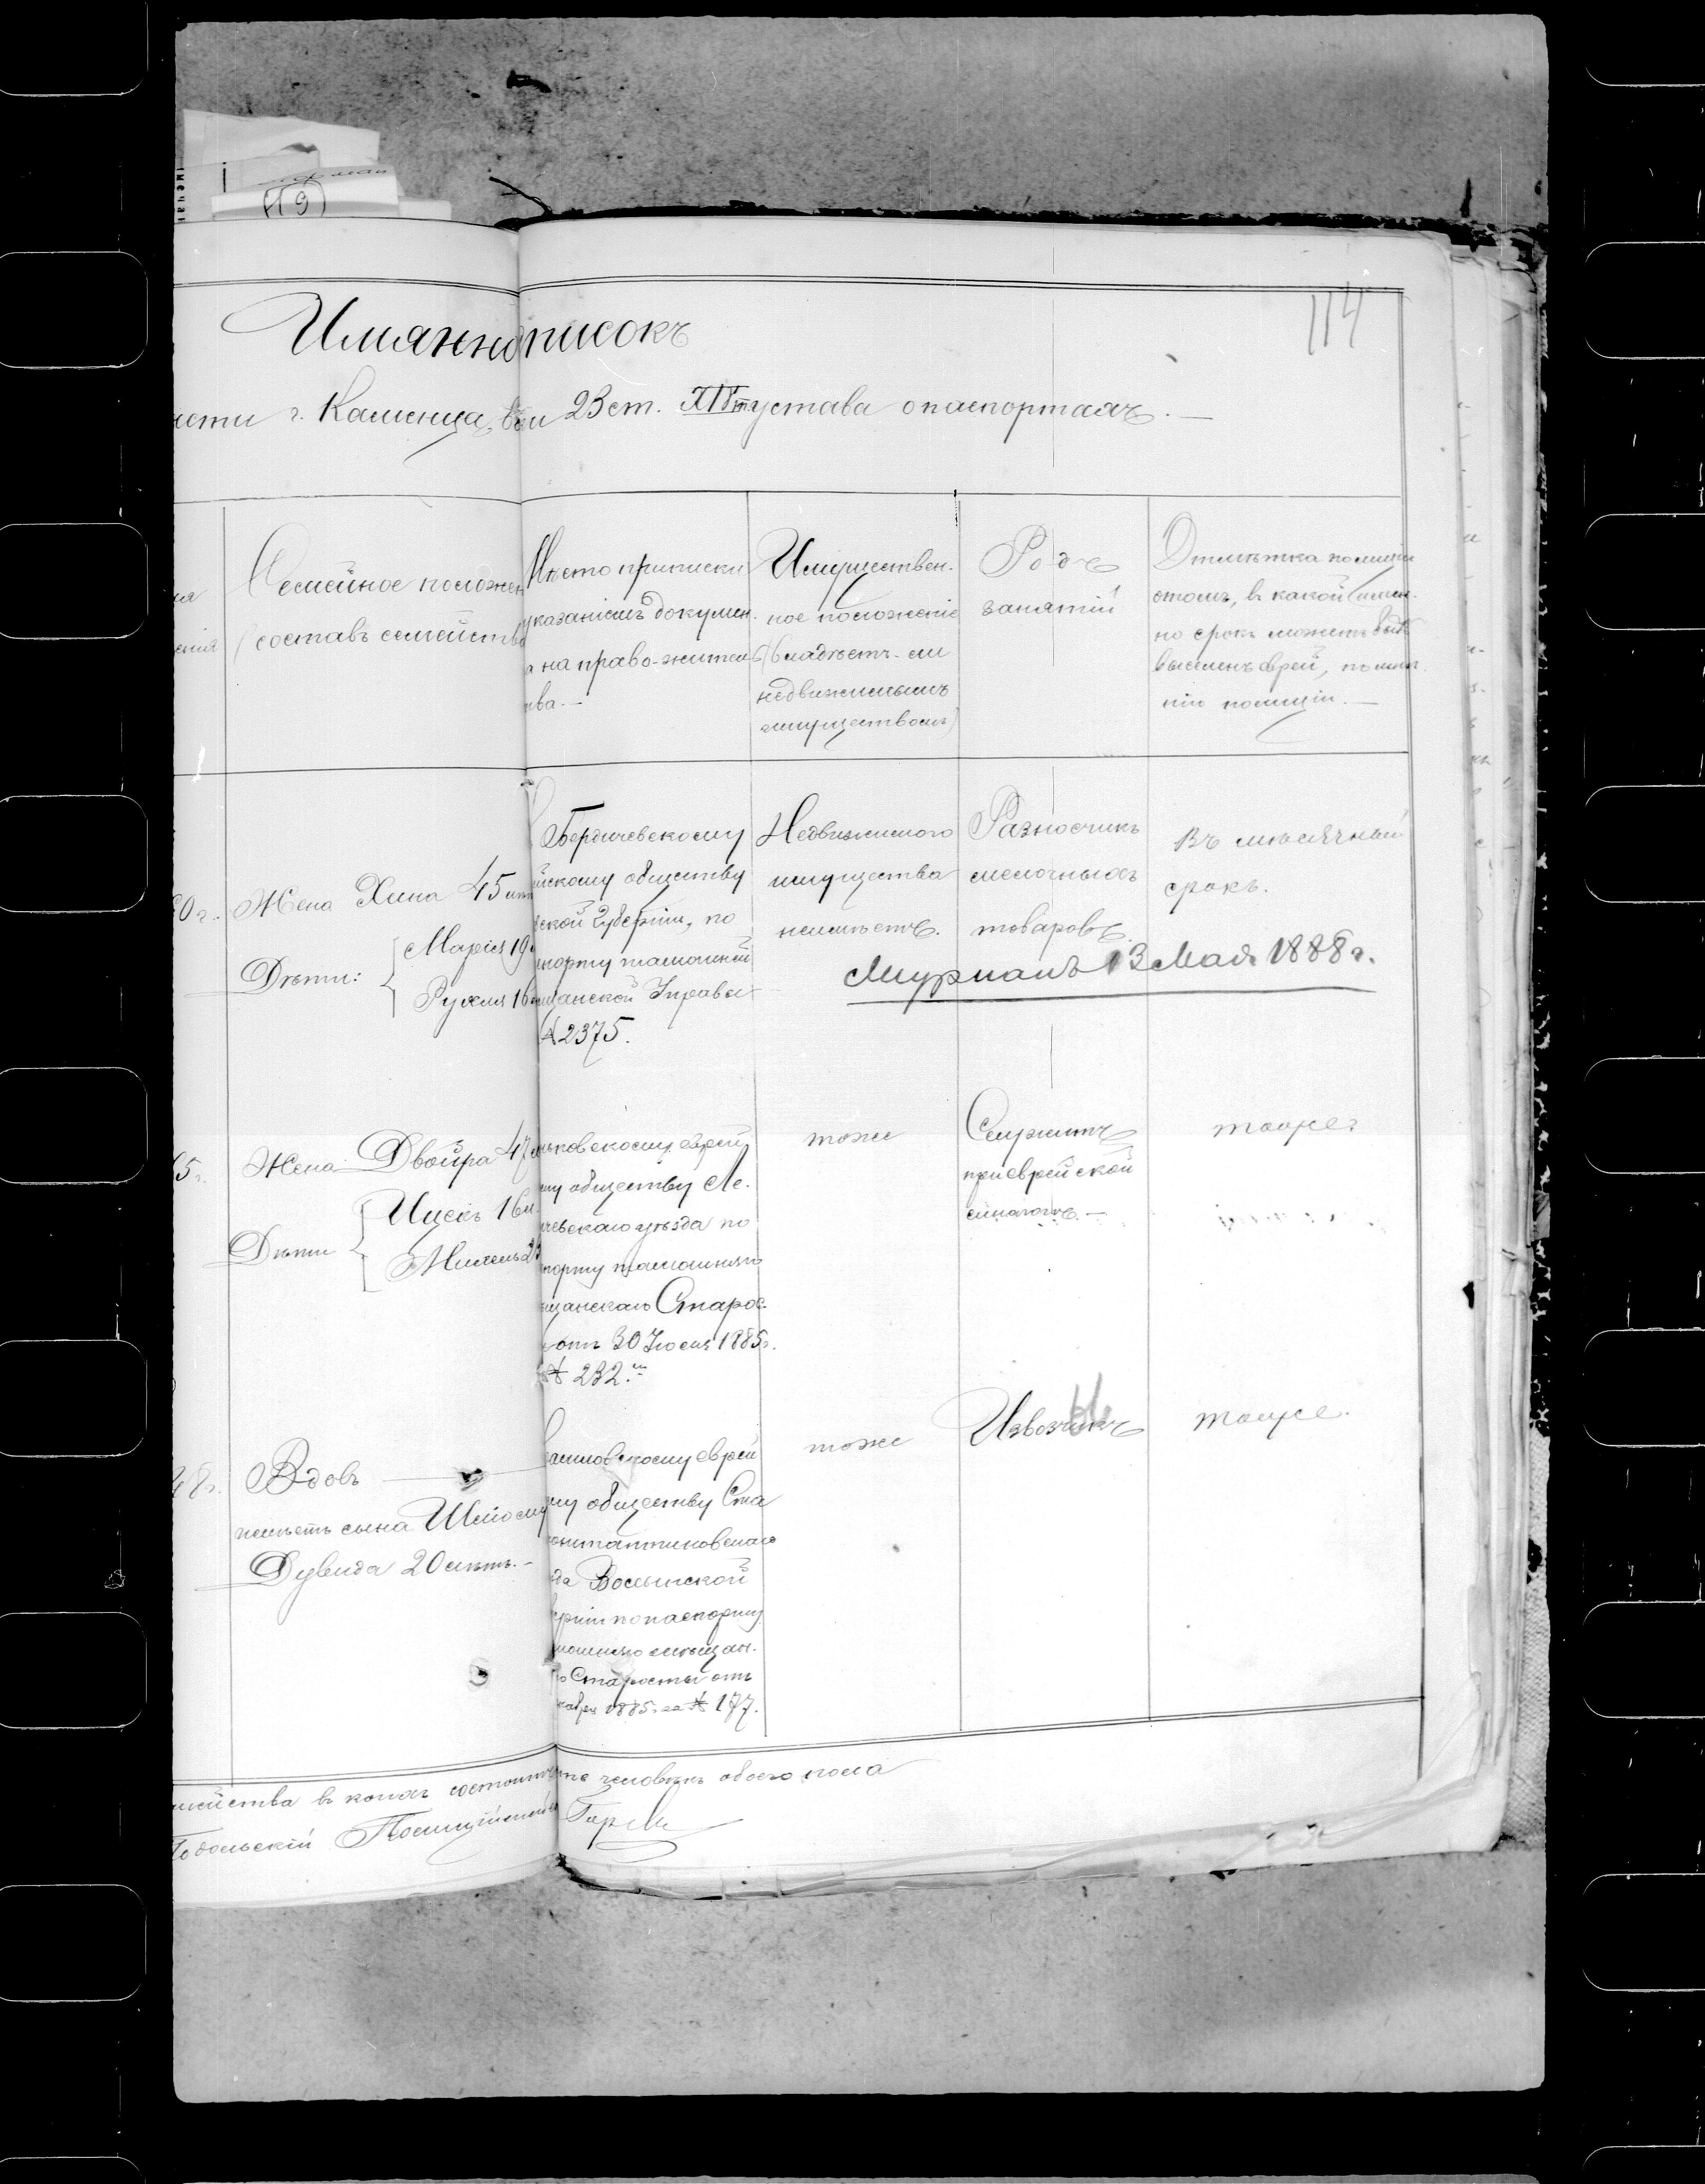 (19)
114
Имянно писокъ
ости г. Каменца, въ и 23 ст. XIV т устава о паспортахъ.—
Семейное положен
(составъ семейства
Мѣсто приписки
указаніемъ докумен.
а на право-житель
тва.—
Имуществен.
ное положеніе
(владѣетъ-ли
недвижимымъ
имуществомъ)
Родъ
занятій
Отмѣтка полиціи
отомъ, въ какой имен.
но срокъ можетъ быть
выселенъ еврей, по мнѣ.
нію полиціи.—
0 г.
Жена Хина 45 лѣт
Дѣти:
Марія 19
Рухля 16
Бердичевскому
йскому обществу
ской Губерніи, по
спорту тамошней
щанской Управы
№ 2375.
Недвижимого
имущества
неимѣетъ.
Разносчикъ
мелочныхъ
товаровъ.
Въ мѣсячный
срокъ.
Мурманъ 13 Мая 1888 г.
5 г.
Жена Двойра 47
Дѣти
Ицекъ 16 л.
Михель
ньковскому еврей
му обществу Ле.
ичевскаго уѣзда по
порту тамошняго
щанскаго Старос.
отъ 30 Іюля 1885 г.
№ 232.
тоже
Служитъ
при еврейской
синагогѣ.—
тоже.
48 г.
Вдовъ
имѣетъ сына Шлёому
Дувида 20 лѣтъ.—
му обществу Ста
онстантиновскаго
да Волынской
ерніи по паспорту
тамошняго мѣщан.
го Старосты отъ
1885 г. за № 177.
тоже
Извозчикъ
тоже.
мейства въ коихъ состоитъ человѣкъ обоего пола
Подольскій Полиціймей